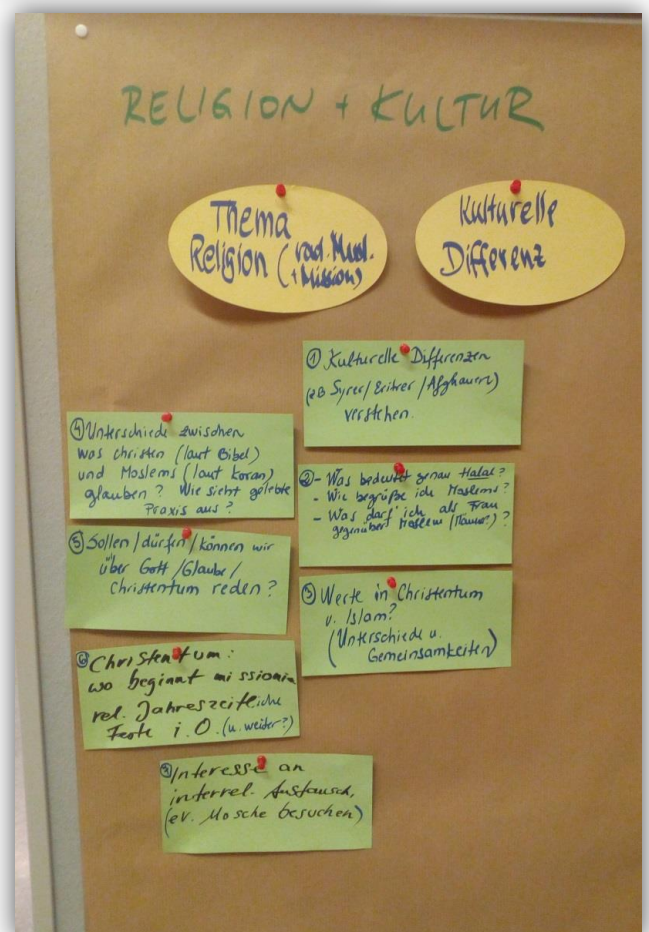 RELIGION + KULTUR
Thema
Religion (rad. Musl.
+ Mission)
Kulturelle
Differenz
① Kulturelle Differenzen
(zB Syrer/Eritrer/Afghanen)
verstehen.
④ Unterschiede zwischen
was Christen (laut Bibel)
und Moslems (laut Koran)
glauben? Wie sieht gelebte
Praxis aus?
② - Was bedeutet genau Halal?
- Wie begrüße ich Moslems?
- Was darf ich als Frau
gegenüber Moslem (Männer)?
⑤ Sollen/dürfen/können wir
über Gott/Glaube/
Christentum reden?
③ Werte in Christentum
u. Islam?
(Unterschiede u.
Gemeinsamkeiten)
⑥ Christentum:
wo beginnt missionie
rel. Jahreszeitliche
Feste i.O. (u. weiter?)
Interesse an
interrel. Austausch,
(ev. Mosche besuchen)